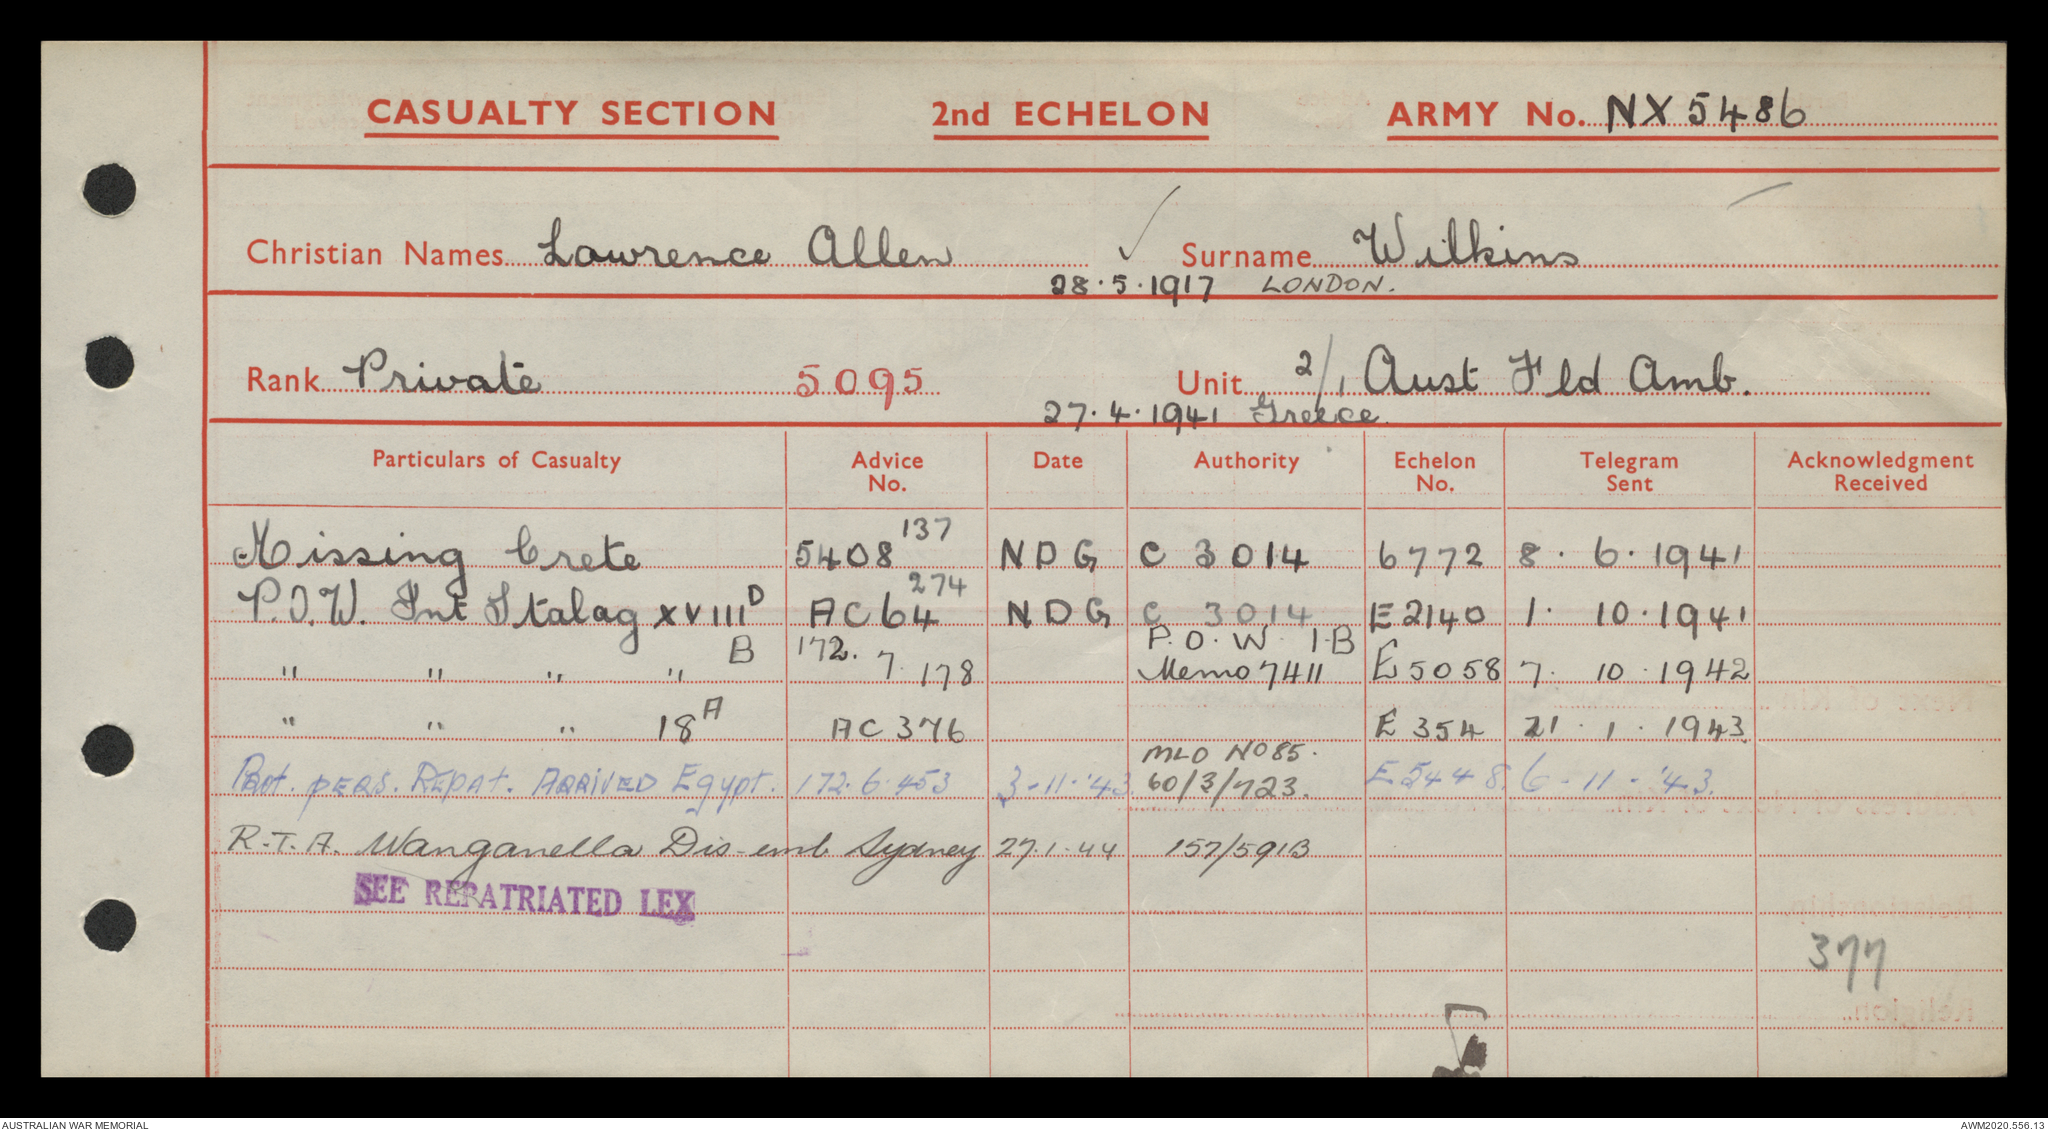 CASUALTY SECTION 2nd ECHELON ARMY No. NX5486
Christian Names Lawrence Allen Surname Wilkins
28.5.1917 LONDON.
Rank Private 5095 Unit 2/1 Aust Fld Amb.
27.4.1941 Greece
Particulars of Casualty Advice No. Date Authority Echelon No. Telegram Sent Acknowledgment Received
Missing Crete 5408 137 NDG C 3014 6772 8.6.1941
P.O.W. Int Stalag XVIII D AC64 274 NDG C 3014 E2140 1.10.1941
" " " " B 172.7.178 P.O.W 1.B Memo 7411 E5058 7.10.1942
" " " 18 A AC376 E354 21.1.1943
Prot. pers. Repat. ARRIVED Egypt. 172.6.453 3-11-'43 MLO No85. 60/3/723. E5448. 6-11-'43.
R.T.A. Wanganella Dis-emb Sydney 27.1.44 157/591B
SEE REPATRIATED LEX
377
AUSTRALIAN WAR MEMORIAL AWM2020.556.13